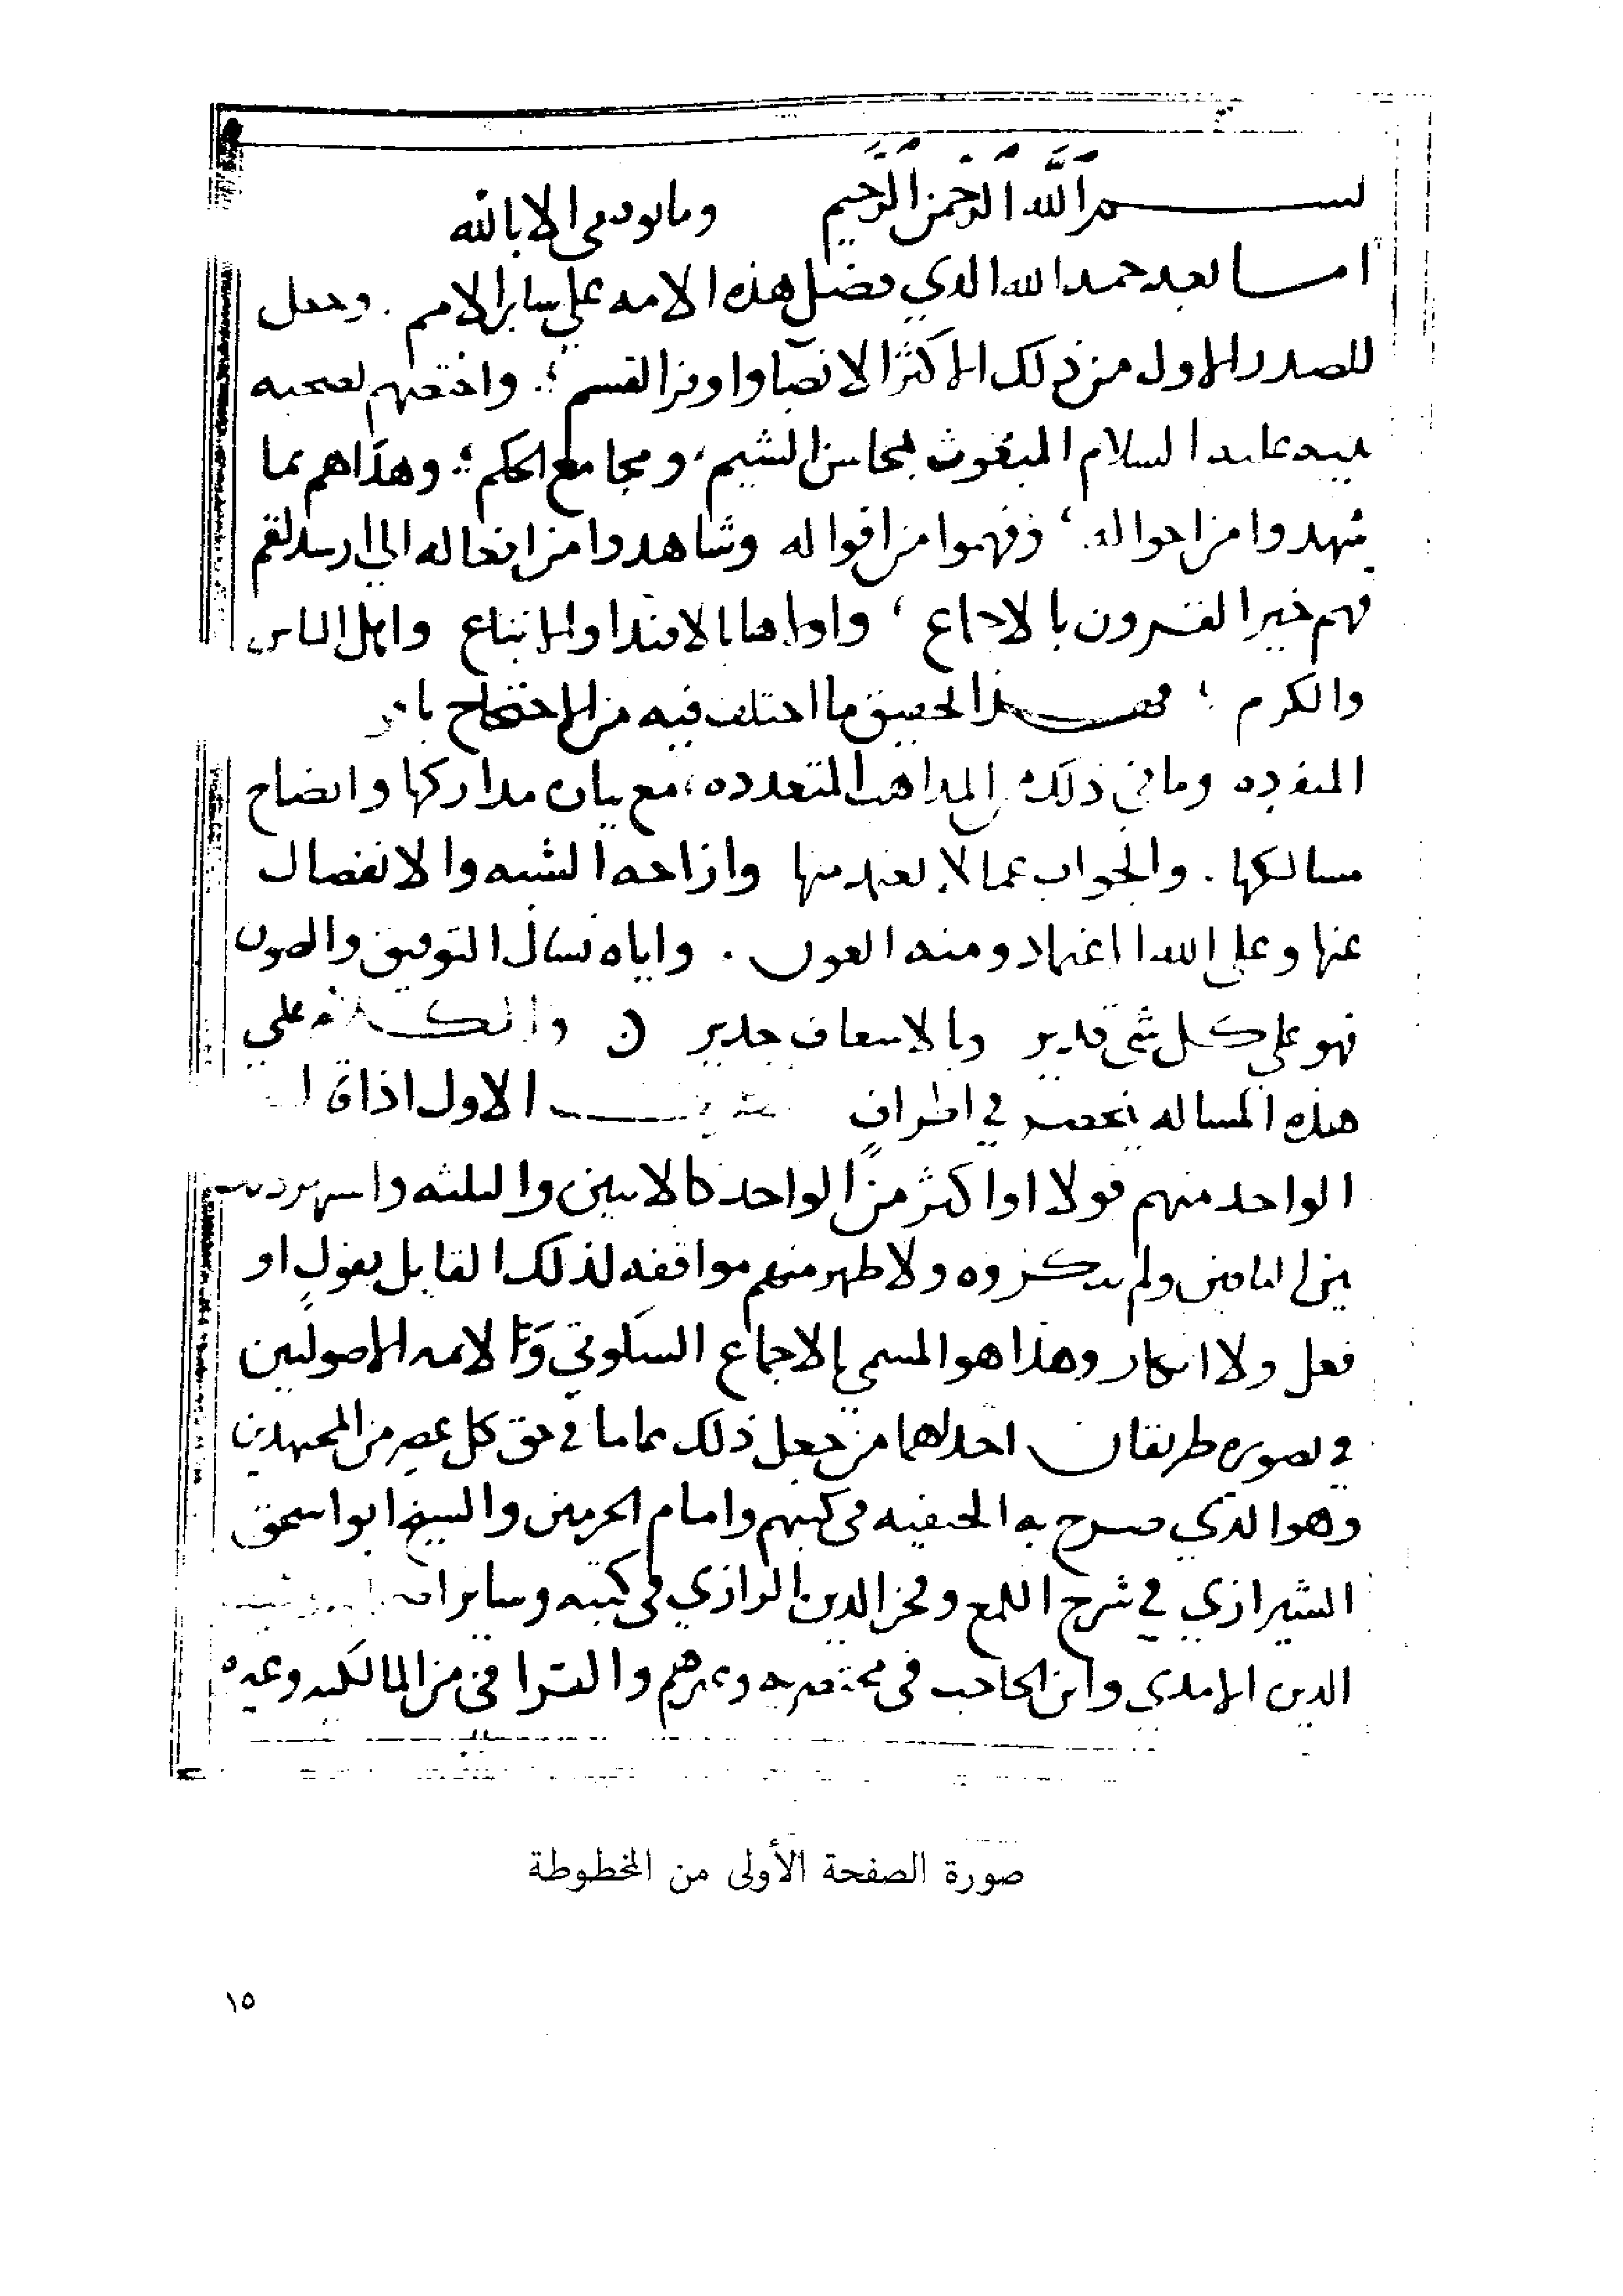 بسم الله الرحمن الرحيم وما توفيقي الا بالله
اما بعد حمد الله الذي فضل هذه الامه علي ساير الامم . وجعل
للصدر الاول من ذلك الاكثر الانصبا واوفر القسم . واختصهم بصحبه
نبيه عليه السلام المبعوث بمحاسن الشيم ، ومجامع الحكم ؛ وهداهم بما
شهدوا من احواله ، وفهموا من اقواله وشاهدوا من افعاله الي ارشد لقم
فهم خير القرون بالاجماع ، واولاها بالاقتدا والاتباع واهل الباس
والكرم ؛ فهذا تحقيق ما اختلف فيه من الاحتجاج
المنفرده وما في ذلك المذاهب المتعدده ، مع بيان مداركها وايضاح
مسالكها . والجواب عما لا يعتمد منها وازاحه الشبه والانفصال
عنها وعلي الله اعتماد ومنه العون . واياه نسال التوفيق والصون
فهو علي كل شي قدير وبالاسعاف جدير والكلام علي
هذه المساله ينحصر في اطراف الاول اذا قال
الواحد منهم قولا او اكثر من الواحد كالاثنين والثلثه واشتهر ذلك
بين الباقين ولم ينكروه ولا ظهر منهم موافقه لذلك القايل بقول او
فعل ولا انكار وهذا هو المسمي بالاجماع السكوتي والايمه الاصوليين
في تصويره طريقان احدلهما من جعل ذلك عاما في حق كل عصر من المجتهدين
وهو الذي صرح به الحنفيه في كتبهم وامام الحرمين والشيخ ابو اسحق
الشيرازي في شرح اللمع وفخر الدين الرازي في كتبه وساير
الدين الامدي وابن الحاجب في مختصريه وغيرهم والقرافي من المالكيه وغيره
صورة الصفحة الأولى من المخطوطة
١٥